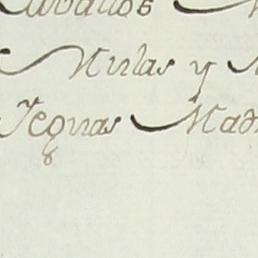 Caballos
Mulas y
Yeguas Mad